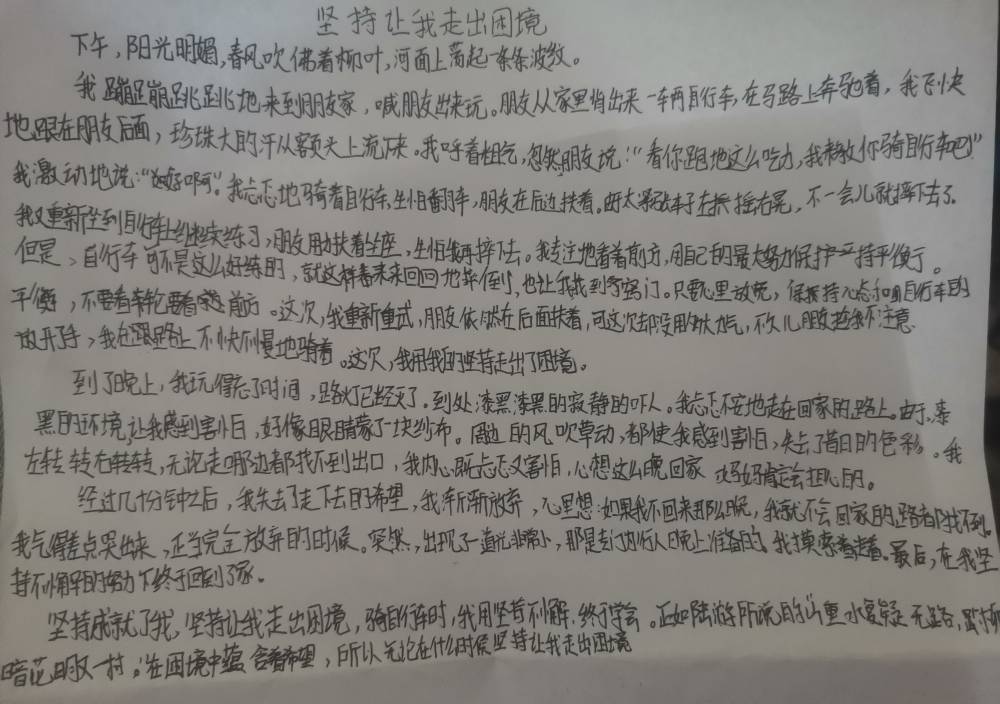 坚持让我走出困境
下午，阳光明媚，春风吹佛着柳叶，河面上荡起一条条波纹。
我蹦蹦跳跳地来到朋友家，喊朋友出来玩。朋友从家里推出来一车两自行车，在马路上奔驰着，我飞快
地跟在朋友后面，珍珠大的汗从额头上流下来。我呼着粗气，忽然朋友说：“看你跑地这么吃力，我教你骑自行车吧！”
我激动地说：“好啊”。我忐忑地骑着自行车，生怕翻车，朋友在后边扶着。由太紧张车子左摇摇右晃，不一会儿就摔下去了。
我又重新坐到自行车上继续练习，朋友用力扶着坐座，生怕我再摔下去。我专注地看着前方，用自己的最大努力保护持平衡。
但是，自行车可不是这么好练的，就这样来来回回地摔倒，也让我找到窍门。只要心里放宽，保持心态和自行车的
平衡，不要看车轮要看前方。这次，我重新重试，朋友依然在后面扶着，可这次却没用力气，不久儿朋友趁我不注意
放开手，我在路上不快不慢地骑着。这次，我用我的坚持走出了困境。
到了晚上，我玩得忘了时间，路灯已经灭了。到处漆黑漆黑的寂静的吓人。我忐忑不安地走在回家的路上。由于，漆
黑的环境让我感到害怕，好像眼睛蒙了一块纱布。周边的风吹草动，都使我感到害怕，失去了昔日的色彩。我
左转转右转转，无论走哪边都找不到出口，我内心既忐忑又害怕，心想这么晚回家妈妈肯定会担心的。
经过几十分钟之后，我失去了走下去的希望，我渐渐放弃，心里想：如果我不回来那么晚，我就不会回家的路都找不到。
我气得差点哭出来，正当完全放弃的时候。突然，出现了一道光非常小，那是专门为行人晚上准备的。我摸索着走着。最后，在我坚
持不懈的努力下终于回到了家。
坚持成就了我，坚持让我走出困境，骑自行车时，我用坚持不懈，终于学会。正如陆游所说的山重水复疑无路，柳
暗花明又一村。在困境中蕴含着希望，所以无论在什么时候坚持让我走出困境